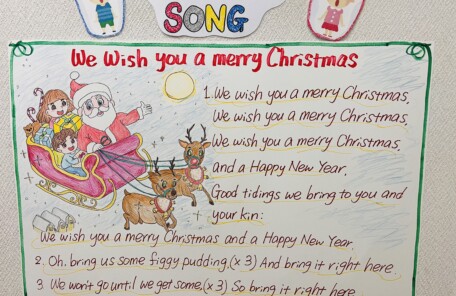 SONG
We Wish you a merry Christmas
1. We wish you a merry Christmas,
We wish you a merry Christmas,
We wish you a merry Christmas,
and a Happy New Year.
Good tidings we bring to you and
your kin:
We wish you a merry Christmas and a Happy New Year.
2. Oh, bring us some figgy pudding,(x3) And bring it right here.
3 We won't go until we get some,(x3) So bring it right here